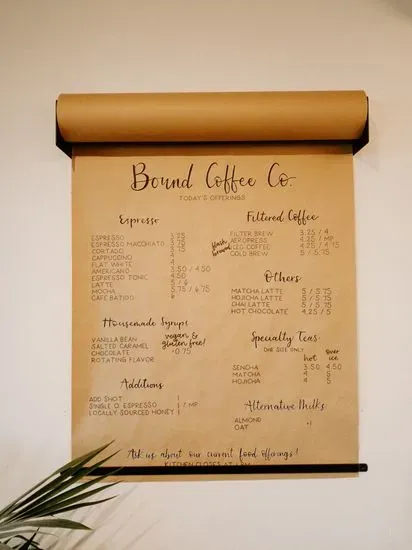 Bound Coffee Co.
TODAY'S OFFERINGS
Espresso
ESPRESSO 3.25
ESPRESSO MACCHIATO 3.75
CORTADO 3.75
CAPPUCCINO 4
FLAT WHITE 4
AMERICANO 3.50 / 4.50
ESPRESSO TONIC 4.50
LATTE 5 / 6
MOCHA 5.75 / 6.75
CAFE BATIDO 6
Housemade Syrups
vegan & gluten free!
VANILLA BEAN
SALTED CARAMEL
CHOCOLATE .75
ROTATING FLAVOR
Additions
ADD SHOT 1
SINGLE O. ESPRESSO 1 / MP
LOCALLY SOURCED HONEY 1
Filtered Coffee
FILTER BREW 3.25 / 4
AEROPRESS 4.25 / MP
flash brewed
ICED COFFEE 4.25 / 4.75
COLD BREW 5 / 5.75
Others
MATCHA LATTE 5 / 5.75
HOJICHA LATTE 5 / 5.75
CHAI LATTE 5 / 5.75
HOT CHOCOLATE 4.25 / 5
Specialty Teas
ONE SIZE ONLY
hot over ice
SENCHA 3.50 4.50
MATCHA 4 5
HOJICHA 4 5
Alternative Milks
ALMOND
OAT +1
Ask us about our current food offerings!
KITCHEN CLOSES AT